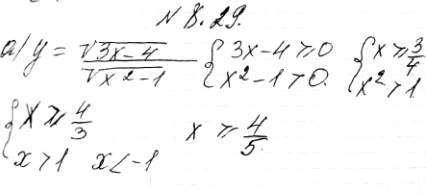 N 8.29.
a/ y = √(3x-4) / √(x²-1) { 3x-4 ≥ 0 x²-1 > 0. { x ≥ 3/4 x² > 1
{ x ≥ 4/3 x > 1 x < -1 x ≥ 4/5.